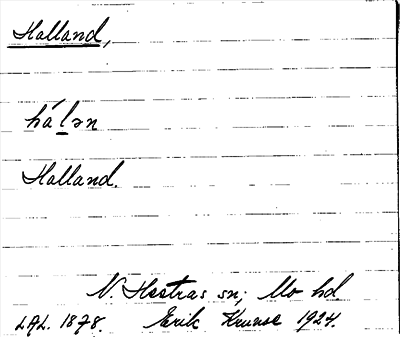 Halland,
hálən
Halland.
N. Hestras sn; Mo hd.
LAL. 1878. Erik Kruuse 1924.